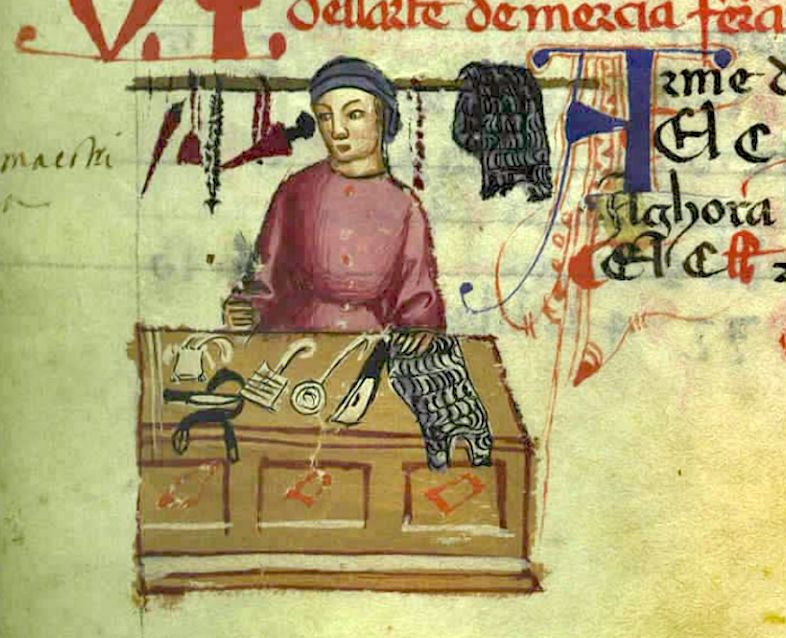 V. T. Dellarte de mercia ferra
maestri
Arme d
El c
Aghora
El c